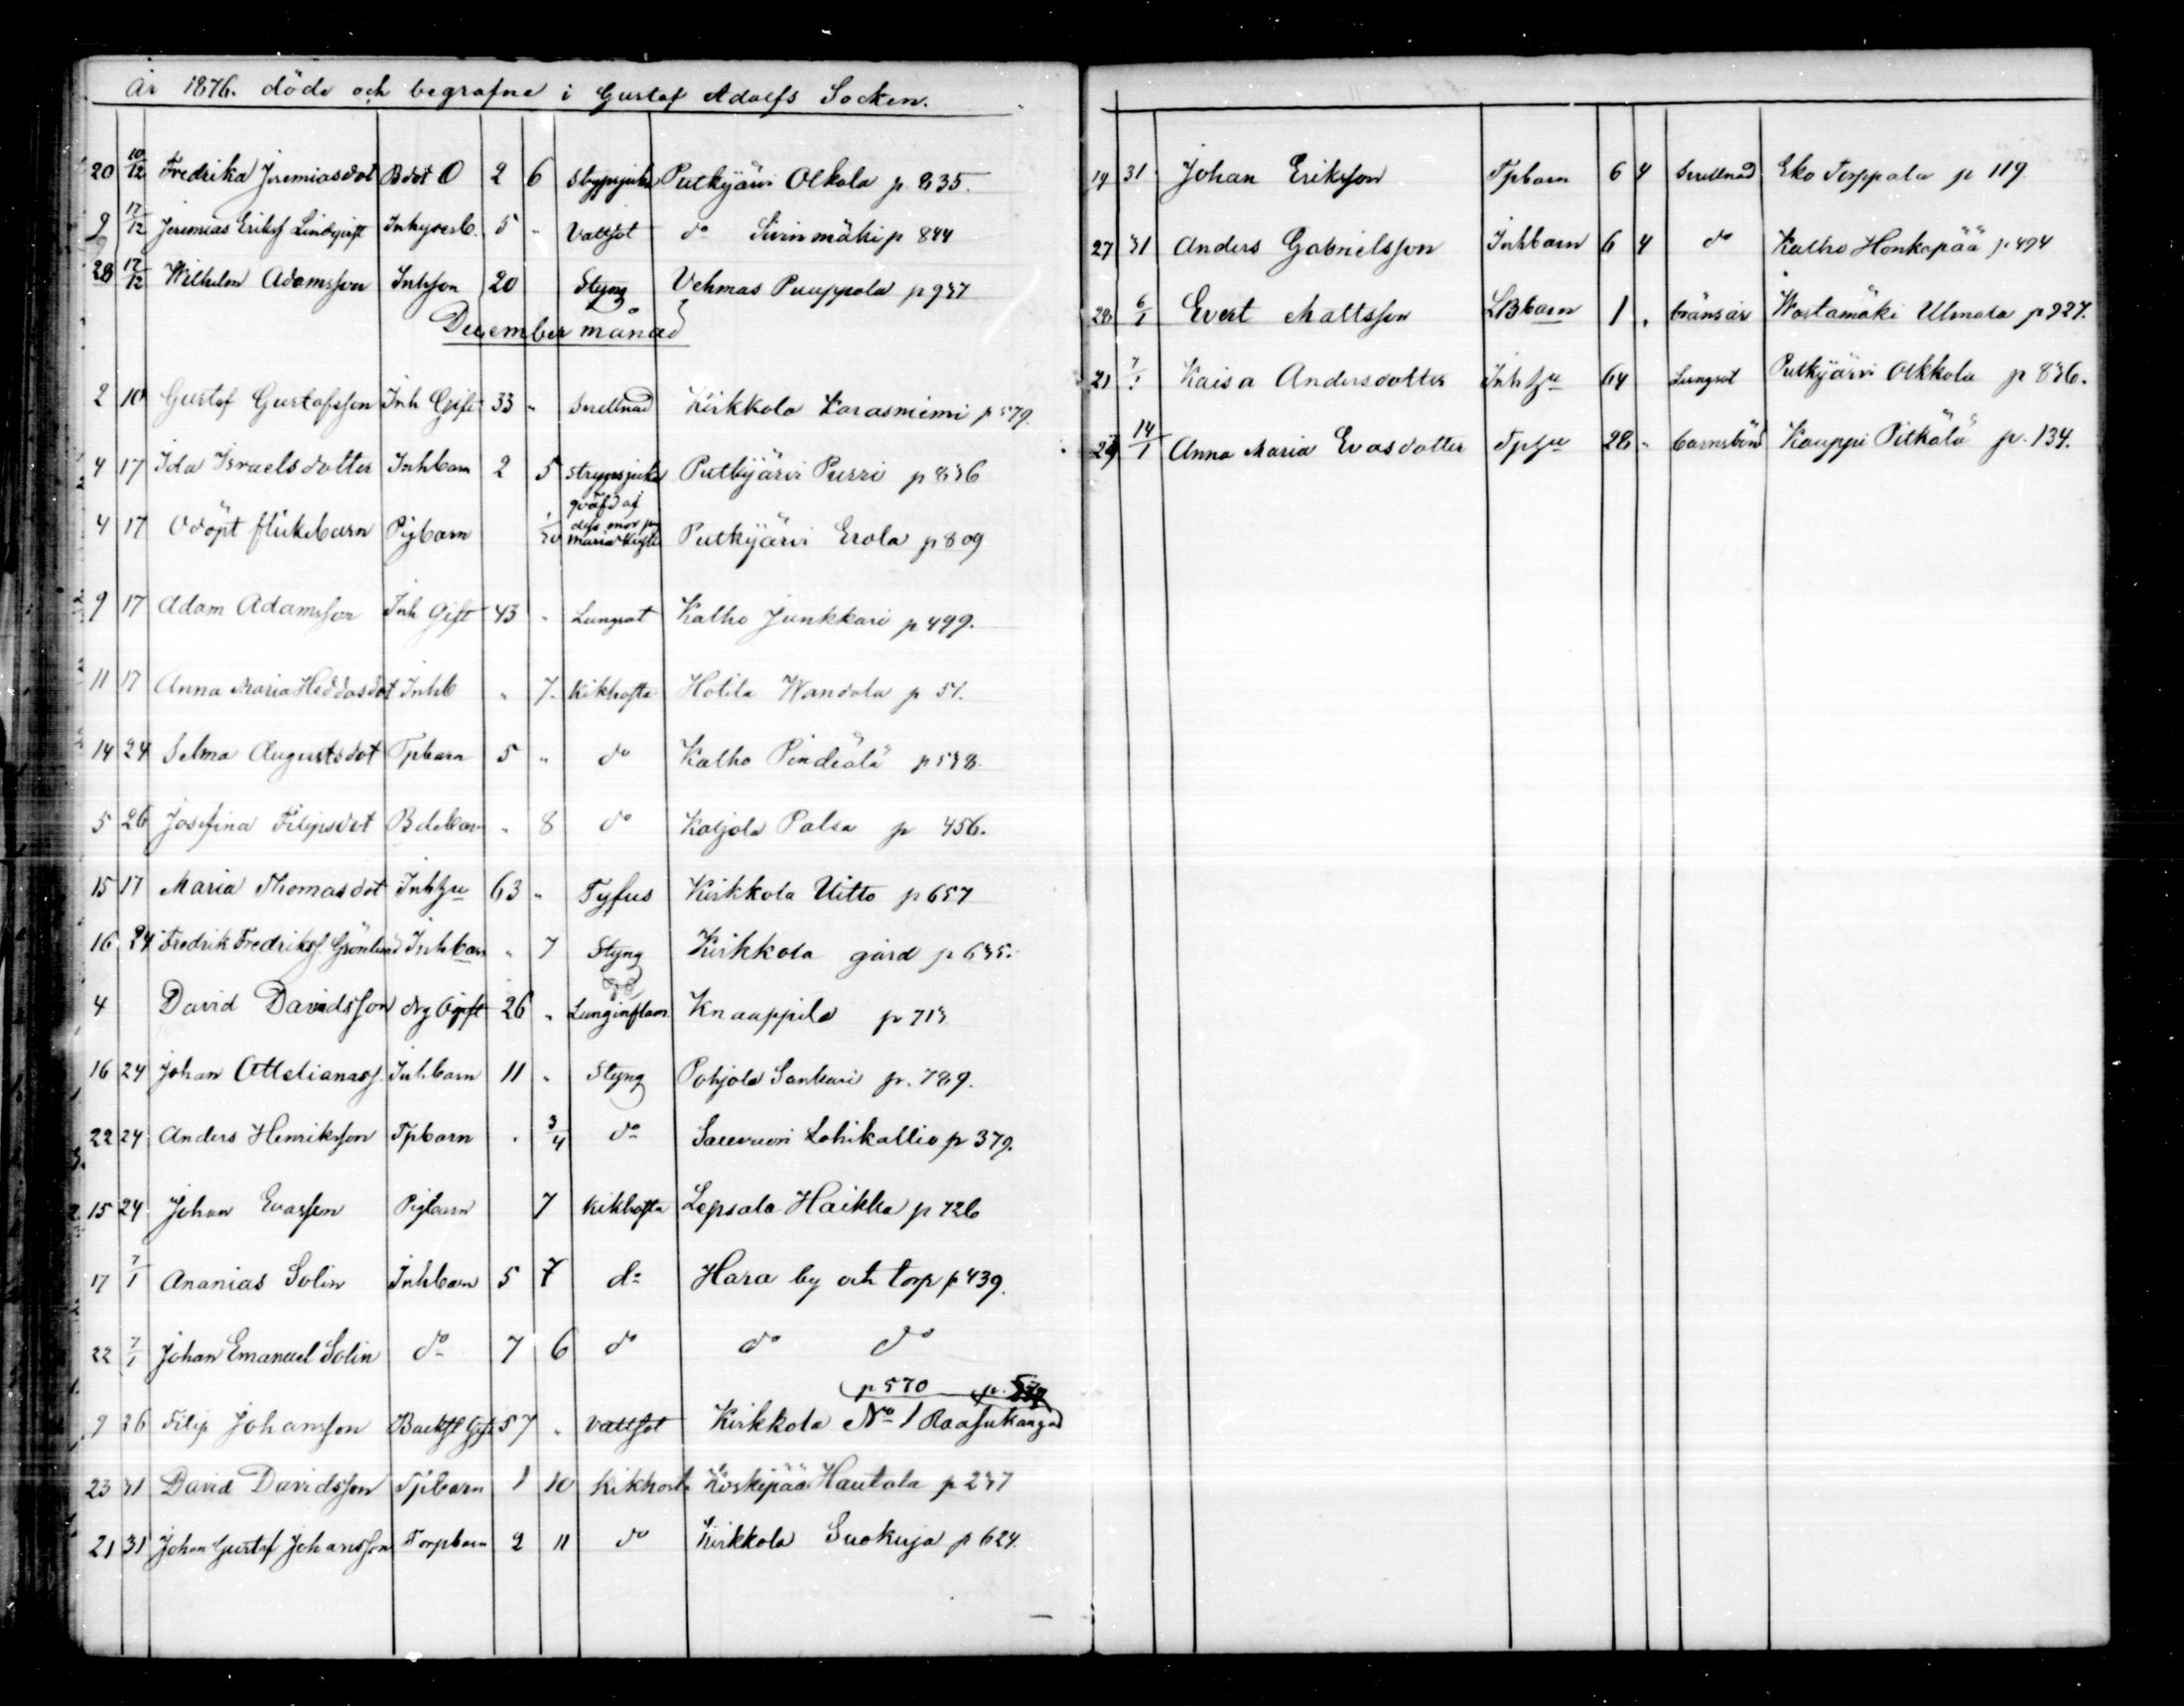 År 1876. döde och begrafne i Gustaf Adolfs Socken.
20 10/12 Fredrika Jeremiasdot Bdot O 2 6 Strypsjuka Putkijärvi Olkola p 835.
9 17/12 Jeremias Eriks Lindqvist Inhyseb. 5 " Vattsot do Sivinmäki p 844
28 17/12 Wilhelm Adamsson Inhson 20 Styng Vehmas Puuppola p 937
December månad
2 10 Gustaf Gustafsson Inh Gift 33 " Snellnad Kirkkola p 579.
4 17 Ida Israelsdotter Inhbarn 2 5 Strypsjuka Putkijärvi Purri p 836
4 17 Odöpt flickebarn Pigbarn 1/30 qväfd af dess mor Maria Putkijärvi Erola p 809
9 17 Adam Adamsson Inh Gift 43 " Lungsot Kalho Junkkari p 499.
11 17 Anna Maria Heddasdot Inhb " 7. Kikhosta Hotila Wandola p 51.
14 24 Selma Augustsdot Tpbarn 5 " do Kalho Pindeälä p 538.
5 26 Josefina Filipsdot Bdebarn " 8 do Kaljola Palsa p 456.
15 17 Maria Thomasdot Inhhu 63 " Tyfus Kirkkola Uitto p 657
16 24 Fredrik Fredriks. Grönlund Inhbarn " 7 Styng Kirkkola gård p 635.
4 David Davidsson drg Ogift 26 " Lunginflam. Knauppila p 713
16 24 Johan Ottelianass. Inhbarn 11 " Styng Pohjola Sankari p. 789.
22 24 Anders Henriksson Tpbarn " 3/4 do Lohikallio p 379.
15 24 Johan Evasson Pigbarn 7 Kikhosta Lepsala Haikka p 726
17 7/1 Ananias Solin Inhbarn 5 7 do Hara by och torp p 439.
22 7/1 Johan Emanuel Solin do 7 6 do do do
p 570
9 26 Filip Johansson Backst Gift 57 " Vattsot Kirkkola No 1 Raasukangas
23 31 David Davidsson Tpbarn 1 10 Kikhosta Koskipää Hautala p 237
21 31 Johan Gustaf Johansson Torpbarn 2 11 do Kirkkola Suokuja p 624.
19 31 Johan Eriksson Tpbarn 6 4 Snellnad Eko Torppala p 119
27 31 Anders Gabrielsson Inhbarn 6 4 do Kalho Honkapää p 494
28 6/1 Evert Mattsson LBbarn 1 " brånsår Wastamäki Ulmala p 927.
21 7/1 Kaisa Andersdotter Inhhu 64 Lungsot Putkijärvi Olkkola p 836.
29 14/1 Anna Maria Evasdotter Tphu 28 " barnsbörd Kauppi Pitkälä p. 134.